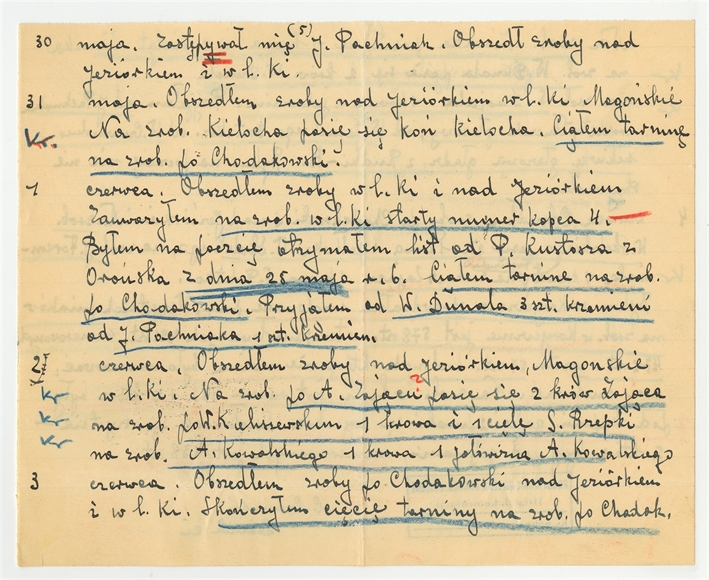 (5)
30 maja. Zastępywał mię J. Pachniak. Obszedł zroby nad
Jeziórkiem i w l. ki.
31 maja. Obszedłem zroby nad Jeziórkiem w l. ki Magońskie
Kr. Na zrob. Kielocha pasie się koń Kielocha. Ciąłem tarninę
na zrob. po Chodakowski.
1 czerwca. Obszedłem zroby w l. ki i nad Jeziórkiem
Zauważyłem na zrob. w l. ki starty numer kopca 4.
Byłem na poczcie otrymałem list od P. Kustosza z
Orońska z dnia 25 maja r. b. Ciąłem tarnine na zrob.
po Chodakowski. Przyjąłem od W. Dunala 3 szt. krzemieni
od J. Pachniaka 1 szt. Krzemien.
2 czerwca. Obszedłem zroby nad Jeziórkiem, Magonskie
Kr w l. ki. Na zrob. po A. Zającu pasię się 2 krów Zająca
Kr na zrob. po W. Kieliszewskim 1 krowa i 1 cielę S. Rzepki
Kr na zrob. A. Kowalskiego 1 krowa 1 jałówizną A. Kowalskiego
3 czerwca. Obszedłem zroby po Chodakowski nad Jeziórkiem
i w l. ki. Skończyłem cięcię tarniny na zrob. po Chodak.